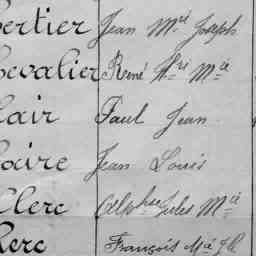 ertier Jean M^ie Joseph
hevalier René H^re M^ie
lair Paul Jean
laire Jean Louis
Clerc Alph^se Jules M^ie
lerc François M^ie J B